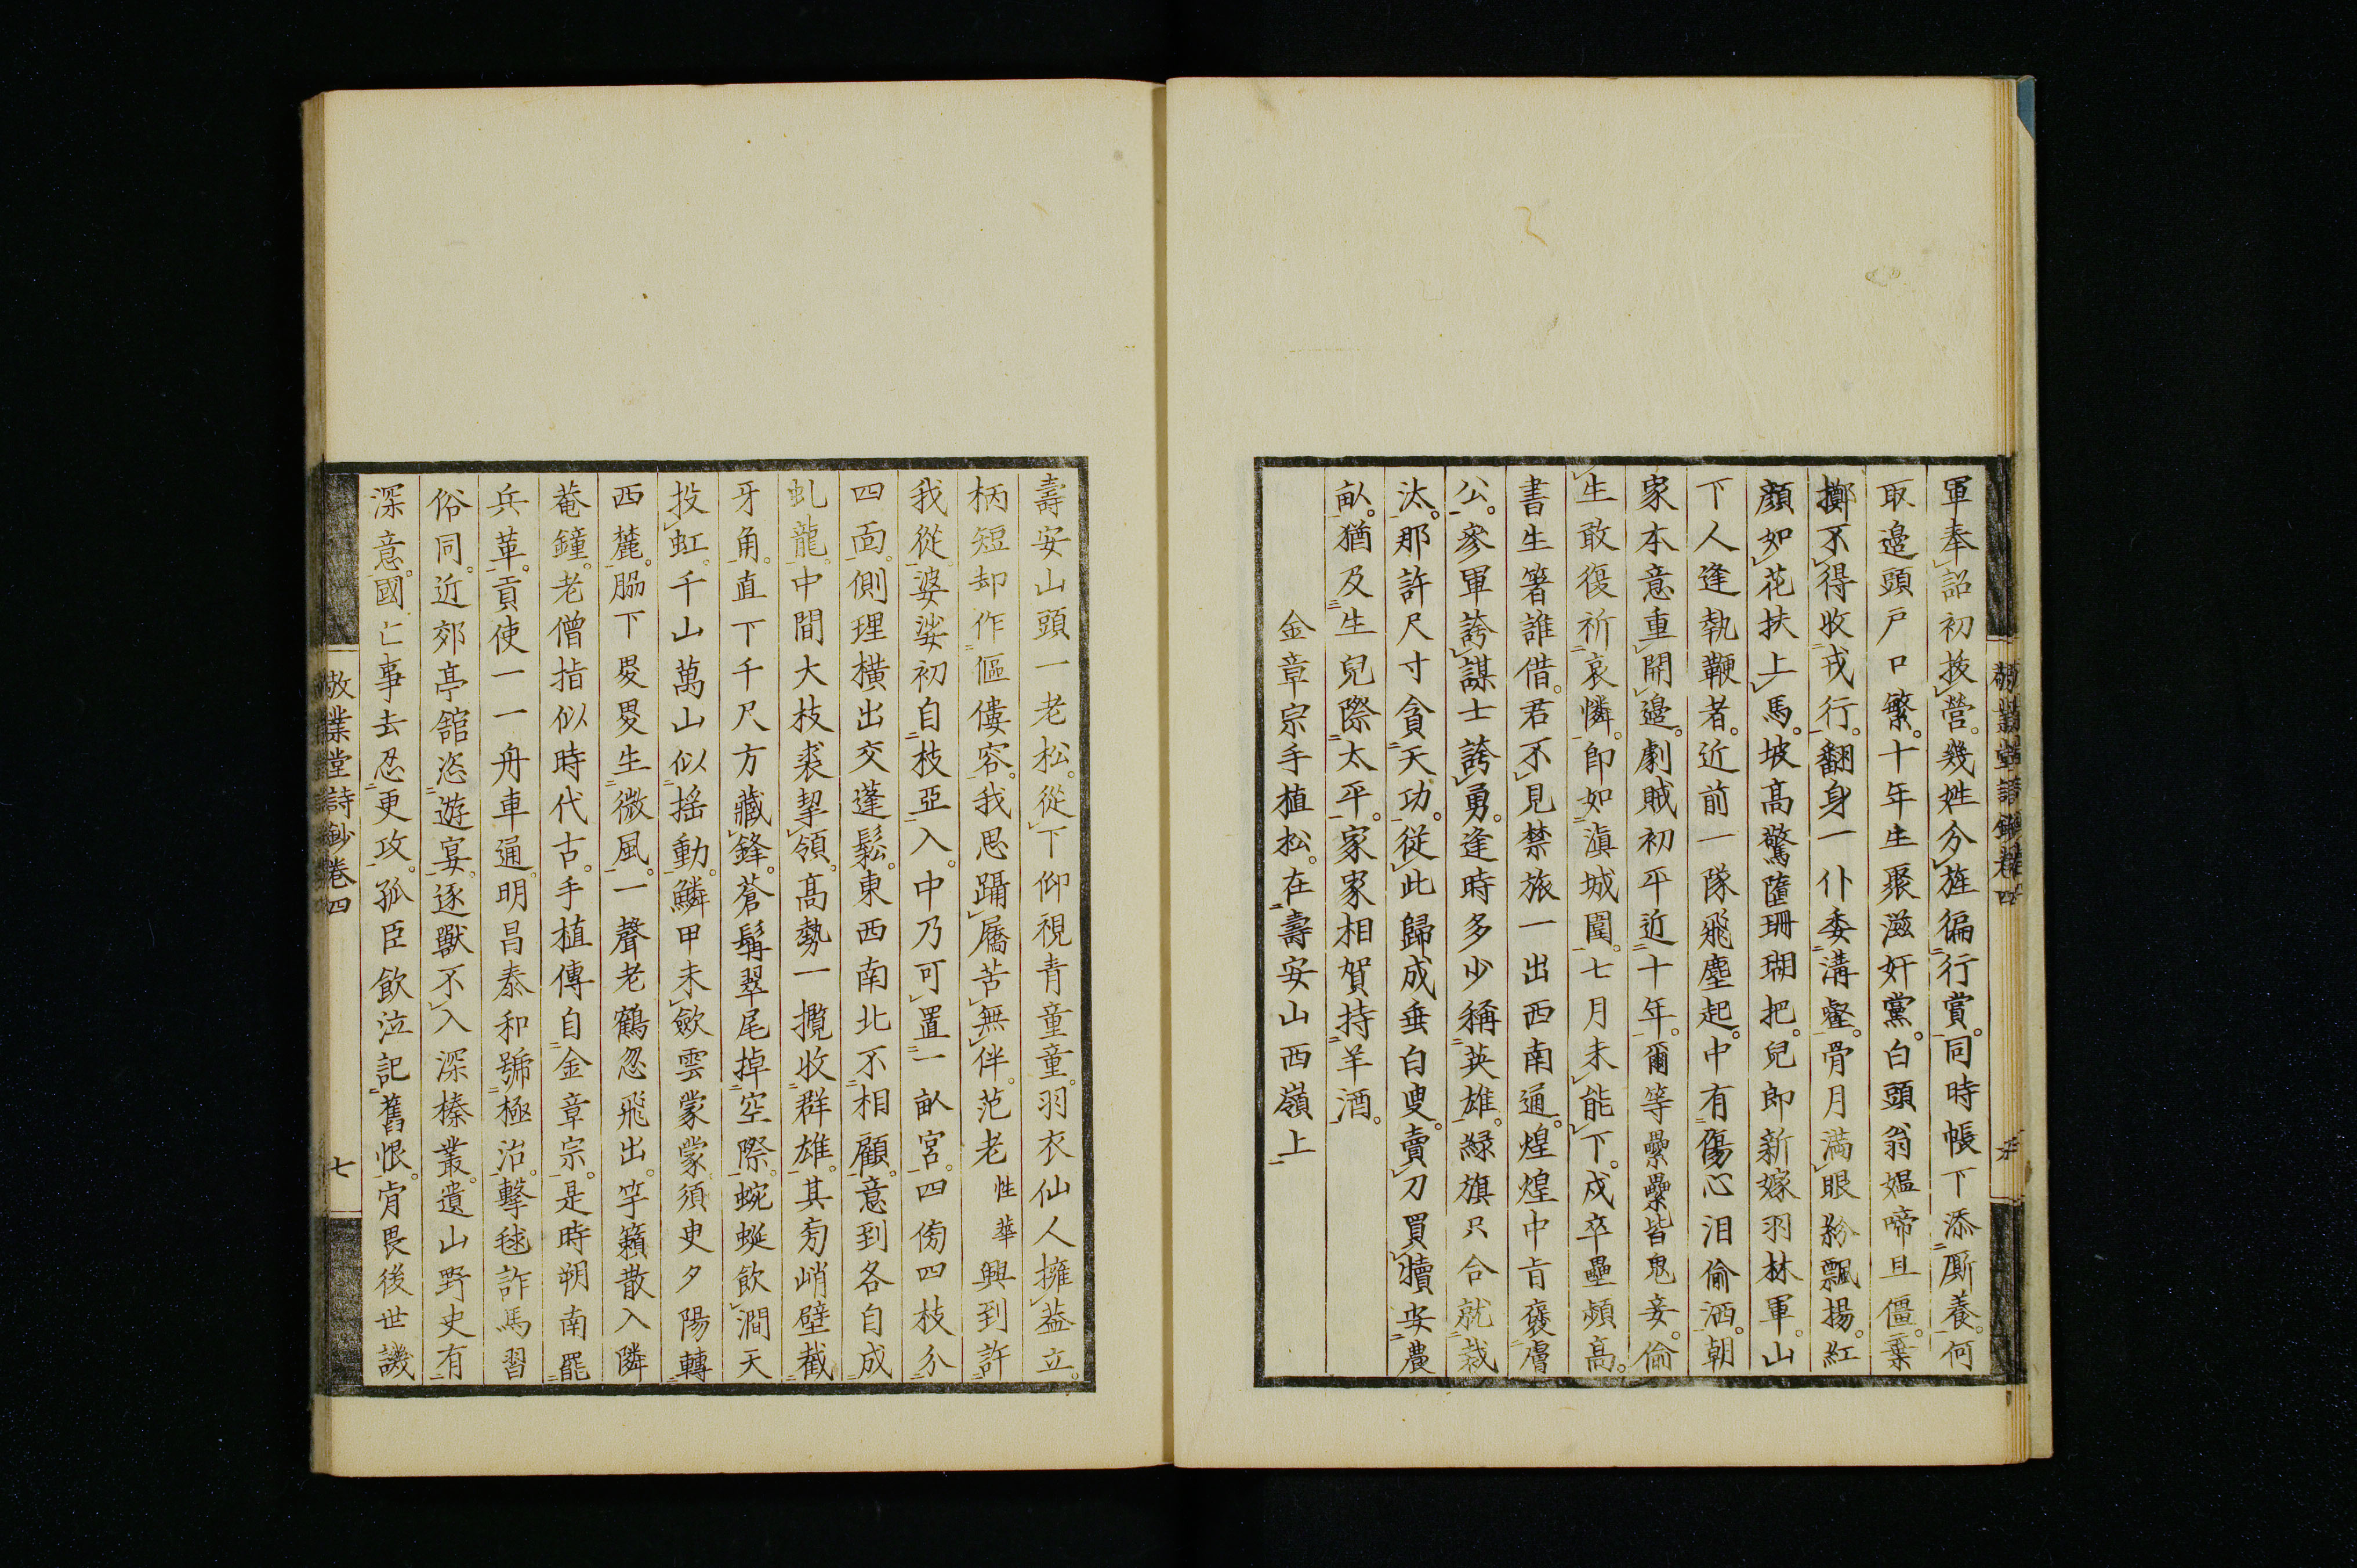 軍奉詔初拔營。幾姓分旌徧行賞。同時帳下添厮養。何
取邊頭戸口繁。十年生聚滋奸黨。白頭翁媼啼且僵。棄
擲不得收戎行。翻身一仆委溝壑。骨月満眼紛飄揚。紅
顔如花扶上馬。坡高驚墮珊瑚把。兒郎新嫁羽林軍。山
下人逢執鞭者。近前一隊飛塵起。中有傷心泪偷洒。朝
家本意重開邊。劇賊初平近十年。爾等纍纍皆鬼妾。偷
生敢復祈哀憐。即如滇城圍。七月未能下。戍卒壘頻高。
書生箸誰借。君不見禁旅一出西南通。煌煌中旨褒膚
公。參軍誇謀士誇勇。逢時多少稱英雄。緑旗只合就裁
汰。那許尺寸貪天功。從此歸成垂白叟。賣刀買犢安農
畒。猶及生兒際太平。家家相賀持羊酒。
金章宗手植松。在壽安山西嶺上
壽安山頭一老松。從下仰視青童童。羽衣仙人擁葢立。
柄短却作傴僂容。我思躡屩苦無伴。范老性華興到許
我從。婆娑初自枝亞入。中乃可置一畒宮。四傍四枝分
四面。側理橫出交蓬鬆。東西南北不相顧。意到各自成
虬龍。中間大枝裘挈領。高勢一攬收群雄。其旁峭壁截
牙角。直下千尺方藏鋒。蒼髯翠尾掉空際。蜿蜒飲澗天
投虹。千山萬山似揺動。鱗甲未歛雲蒙蒙須臾夕陽轉
西麓。脇下畟畟生微風。一聲老鶴忽飛出。竽籟散入隣
菴鐘。老僧指似時代古。手植傳自金章宗。是時朔南罷
兵革。貢使一一舟車通。明昌泰和號極治。擊毬詐馬習
俗同。近郊亭舘恣遊宴。逐獸不入深榛叢。遺山野史有
深意。國亡事去忍更攻。孤臣飲泣記舊恨。肯畏後世譏
敬業堂詩鈔卷四
七